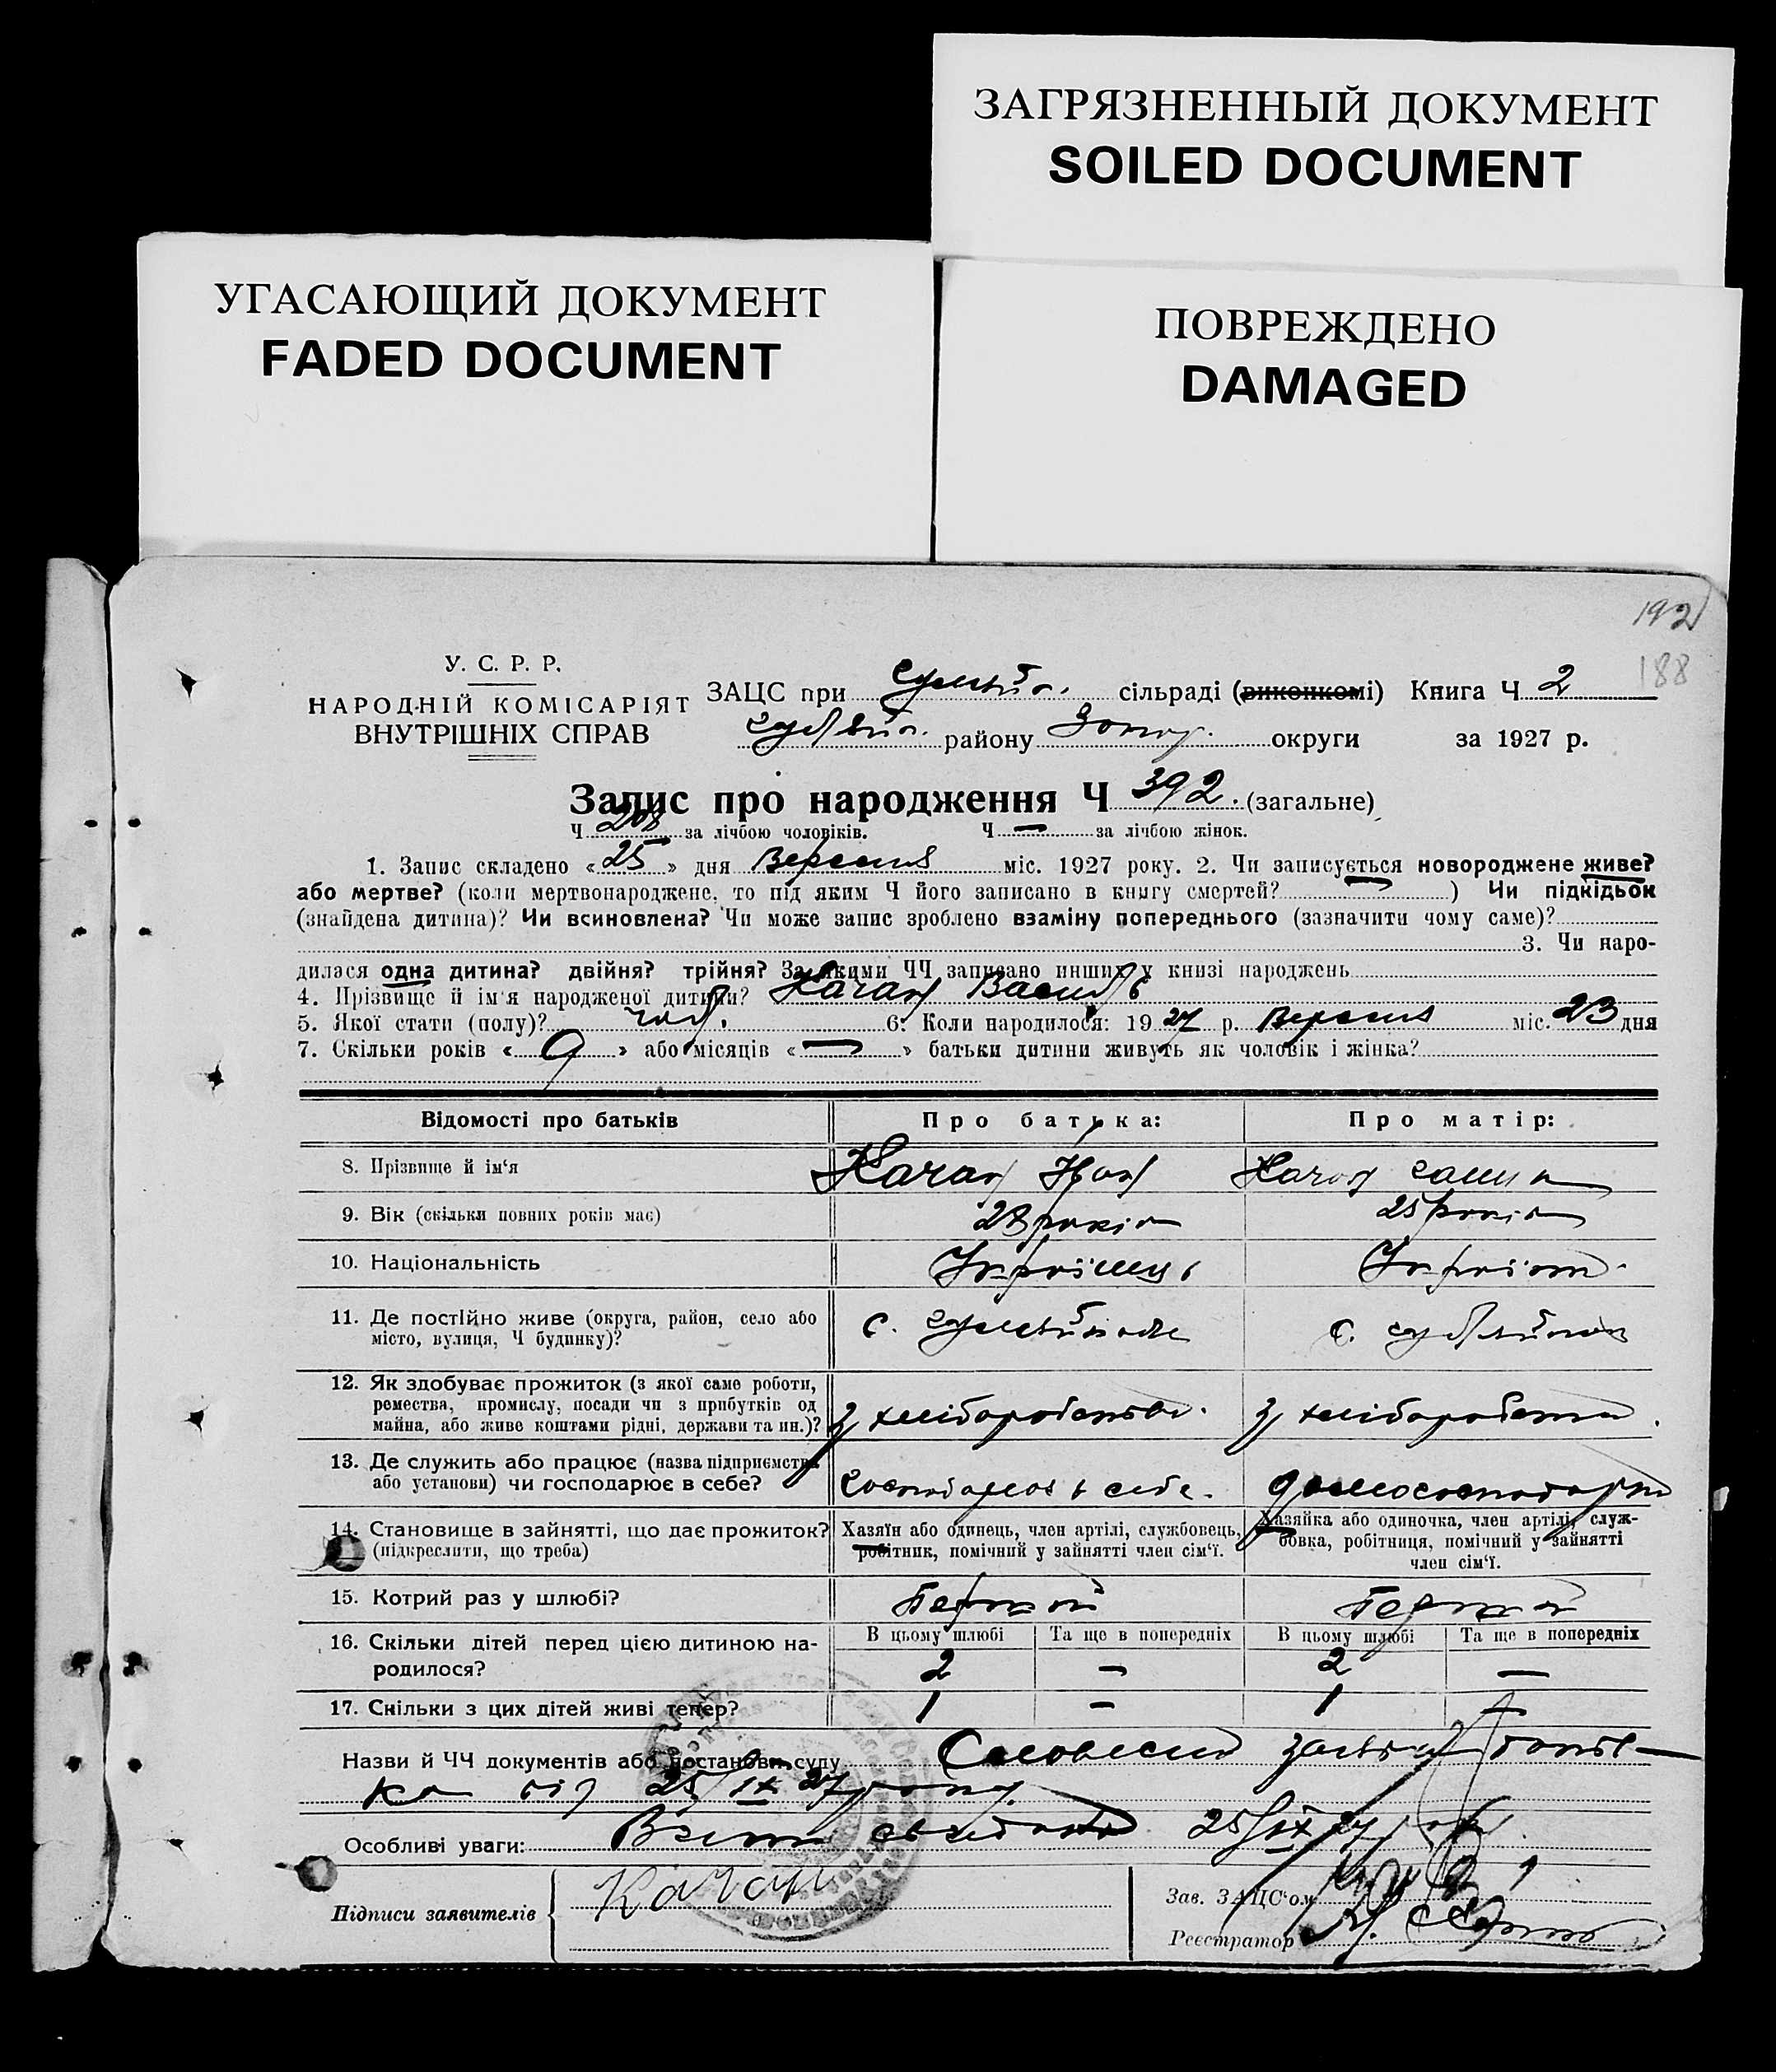 ЗАГРЯЗНЕННЫЙ ДОКУМЕНТ
SOILED DOCUMENT
УГАСАЮЩИЙ ДОКУМЕНТ
FADED DOCUMENT
ПОВРЕЖДЕНО
DAMAGED
192
188
У. С. Р. Р.
НАРОДНІЙ КОМІСАРІЯТ
ВНУТРІШНІХ СПРАВ
ЗАЦС при сільраді (виконкомі) Книга Ч 2
району округи за 1927 р.
Запис про народження Ч 392. (загальне)
Ч 208 за лічбою чоловіків. Ч — за лічбою жінок.
1. Запис складено «25» дня Вересня міс. 1927 року. 2. Чи записується новороджене живе?
або мертве? (коли мертвонароджене, то під яким Ч його записано в книгу смертей? ) Чи підкідьок
(знайдена дитина)? Чи всиновлена? Чи може запис зроблено взаміну попереднього (зазначити чому саме)?
3. Чи наро-
дилася одна дитина? двійня? трійня? За якими ЧЧ записано инших у книзі народжень
4. Прізвище й ім'я народженої дитини? Качан Василь
5. Якої стати (полу)? чол. 6. Коли народилося: 1927 р. Вересня міс. 23 дня
7. Скільки років «9» або місяців «—» батьки дитини живуть як чоловік і жінка?
Відомості про батьків
Про батька:
Про матір:
8. Прізвище й ім'я
Качан Іван
Качан
9. Вік (скільки повних років має)
28 років
25 років
10. Національність
Українець
11. Де постійно живе (округа, район, село або
місто, вулиця, Ч будинку)?
с.
с.
12. Як здобуває прожиток (з якої саме роботи,
ремества, промислу, посади чи з прибутків од
майна, або живе коштами рідні, держави та ин.)?
з хліборобства.
з хліборобства.
13. Де служить або працює (назва підприємства
або установи) чи господарює в себе?
в себе.
14. Становище в зайнятті, що дає прожиток?
(підкреслити, що треба)
Хазяїн або одинець, член артілі, службовець,
робітник, помічний у зайнятті член сім'ї.
Хазяйка або одиночка, член артілі, служ-
бовка, робітниця, помічний у зайнятті
член сім'ї.
15. Котрий раз у шлюбі?
Первий
Первий
16. Скільки дітей перед цією дитиною на-
родилося?
В цьому шлюбі
Та ще в попередніх
В цьому шлюбі
Та ще в попередніх
2
—
2
—
17. Скільки з цих дітей живі тепер?
1
—
1
—
Назви й ЧЧ документів або постанови суду
від 25/IX 27 року.
Особливі уваги: 25/IX 27
Підписи заявителів
Качан
Зав. ЗАЦС'ом
Реєстратор